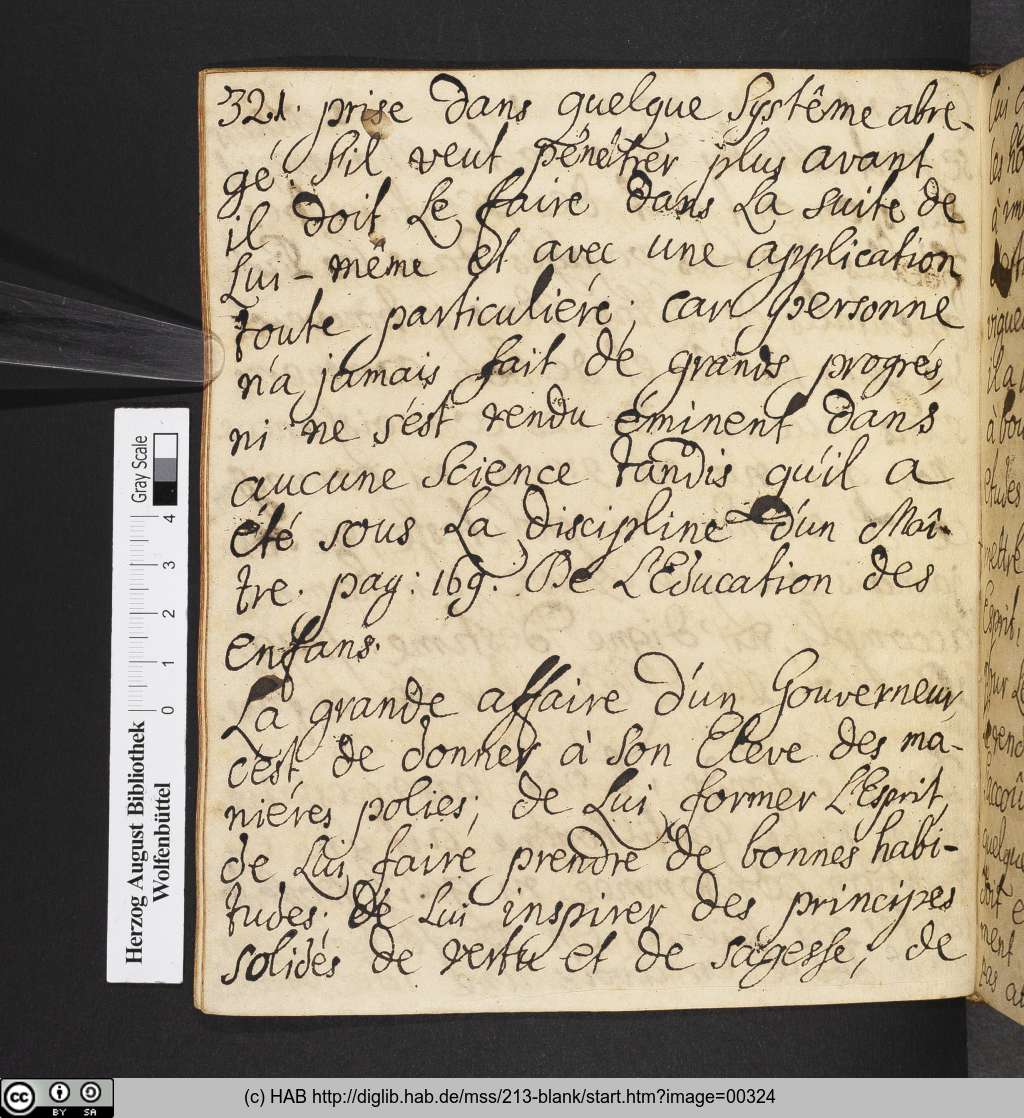 321. prise dans quelque Systême abre-
gé. S'il veut pénétrer plus avant
il doit Le faire dans La suite de
Lui-même et avec une application
toute particuliére; car personne
n'a jamais fait de grands progrés,
ni ne s'est rendu éminent dans
aucune Science tandis qu'il a
été sous La discipline d'un Maî-
tre. pag: 169. De L'Education des
enfans.
La grande affaire d'un Gouverneur,
c'est de donner à Son Eleve des ma-
niéres polies; de Lui former L'Esprit,
de Lui faire prendre de bonnes habi-
tudes; de Lui inspirer des principes
solides de vertu et de sagesse, de
Herzog August Bibliothek
Wolfenbüttel
Gray Scale
0 1 2 3 4
cc BY SA
(c) HAB http://diglib.hab.de/mss/213-blank/start.htm?image=00324